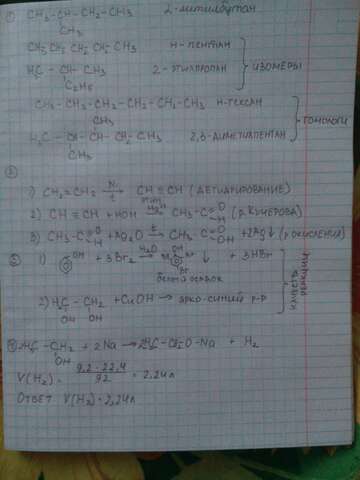 ① CH₃-CH-CH₂-CH₃ 2-метилбутан
CH₃
CH₃ CH₂ CH₂ CH₂ CH₃ н-пентан
H₃C - CH - CH₃ 2-этилпропан
C₂H₅
} изомеры
CH₃-CH₂-CH₂-CH₂-CH₂-CH₃ н-гексан
CH₃
H₃C-CH-CH-CH₂-CH₃ 2,3-диметилпентан
CH₃
} гомологи
1) CH₂=CH₂ →t CH≡CH (дегидрирование)
2) CH≡CH + HOH → CH₃-C=O H (р. Кучерова)
3) CH₃-C=O H + Ag₂O →t CH₃-C=O OH + 2Ag↓ (р окисления)
② 1) OH + 3Br₂ →H₂O OH Br Br ↓ + 3HBr
белый осадок
2) H₂C - CH₂ + CuOH → ярко-синий р-р
OH OH
качеств. реакции
④ 2H₃C-CH₂ + 2Na → 2H₃C-CH₂O-Na + H₂
OH
V(H₂) = 9,2 · 22,4 / 92 = 2,24л
Ответ V(H₂) = 2,24л